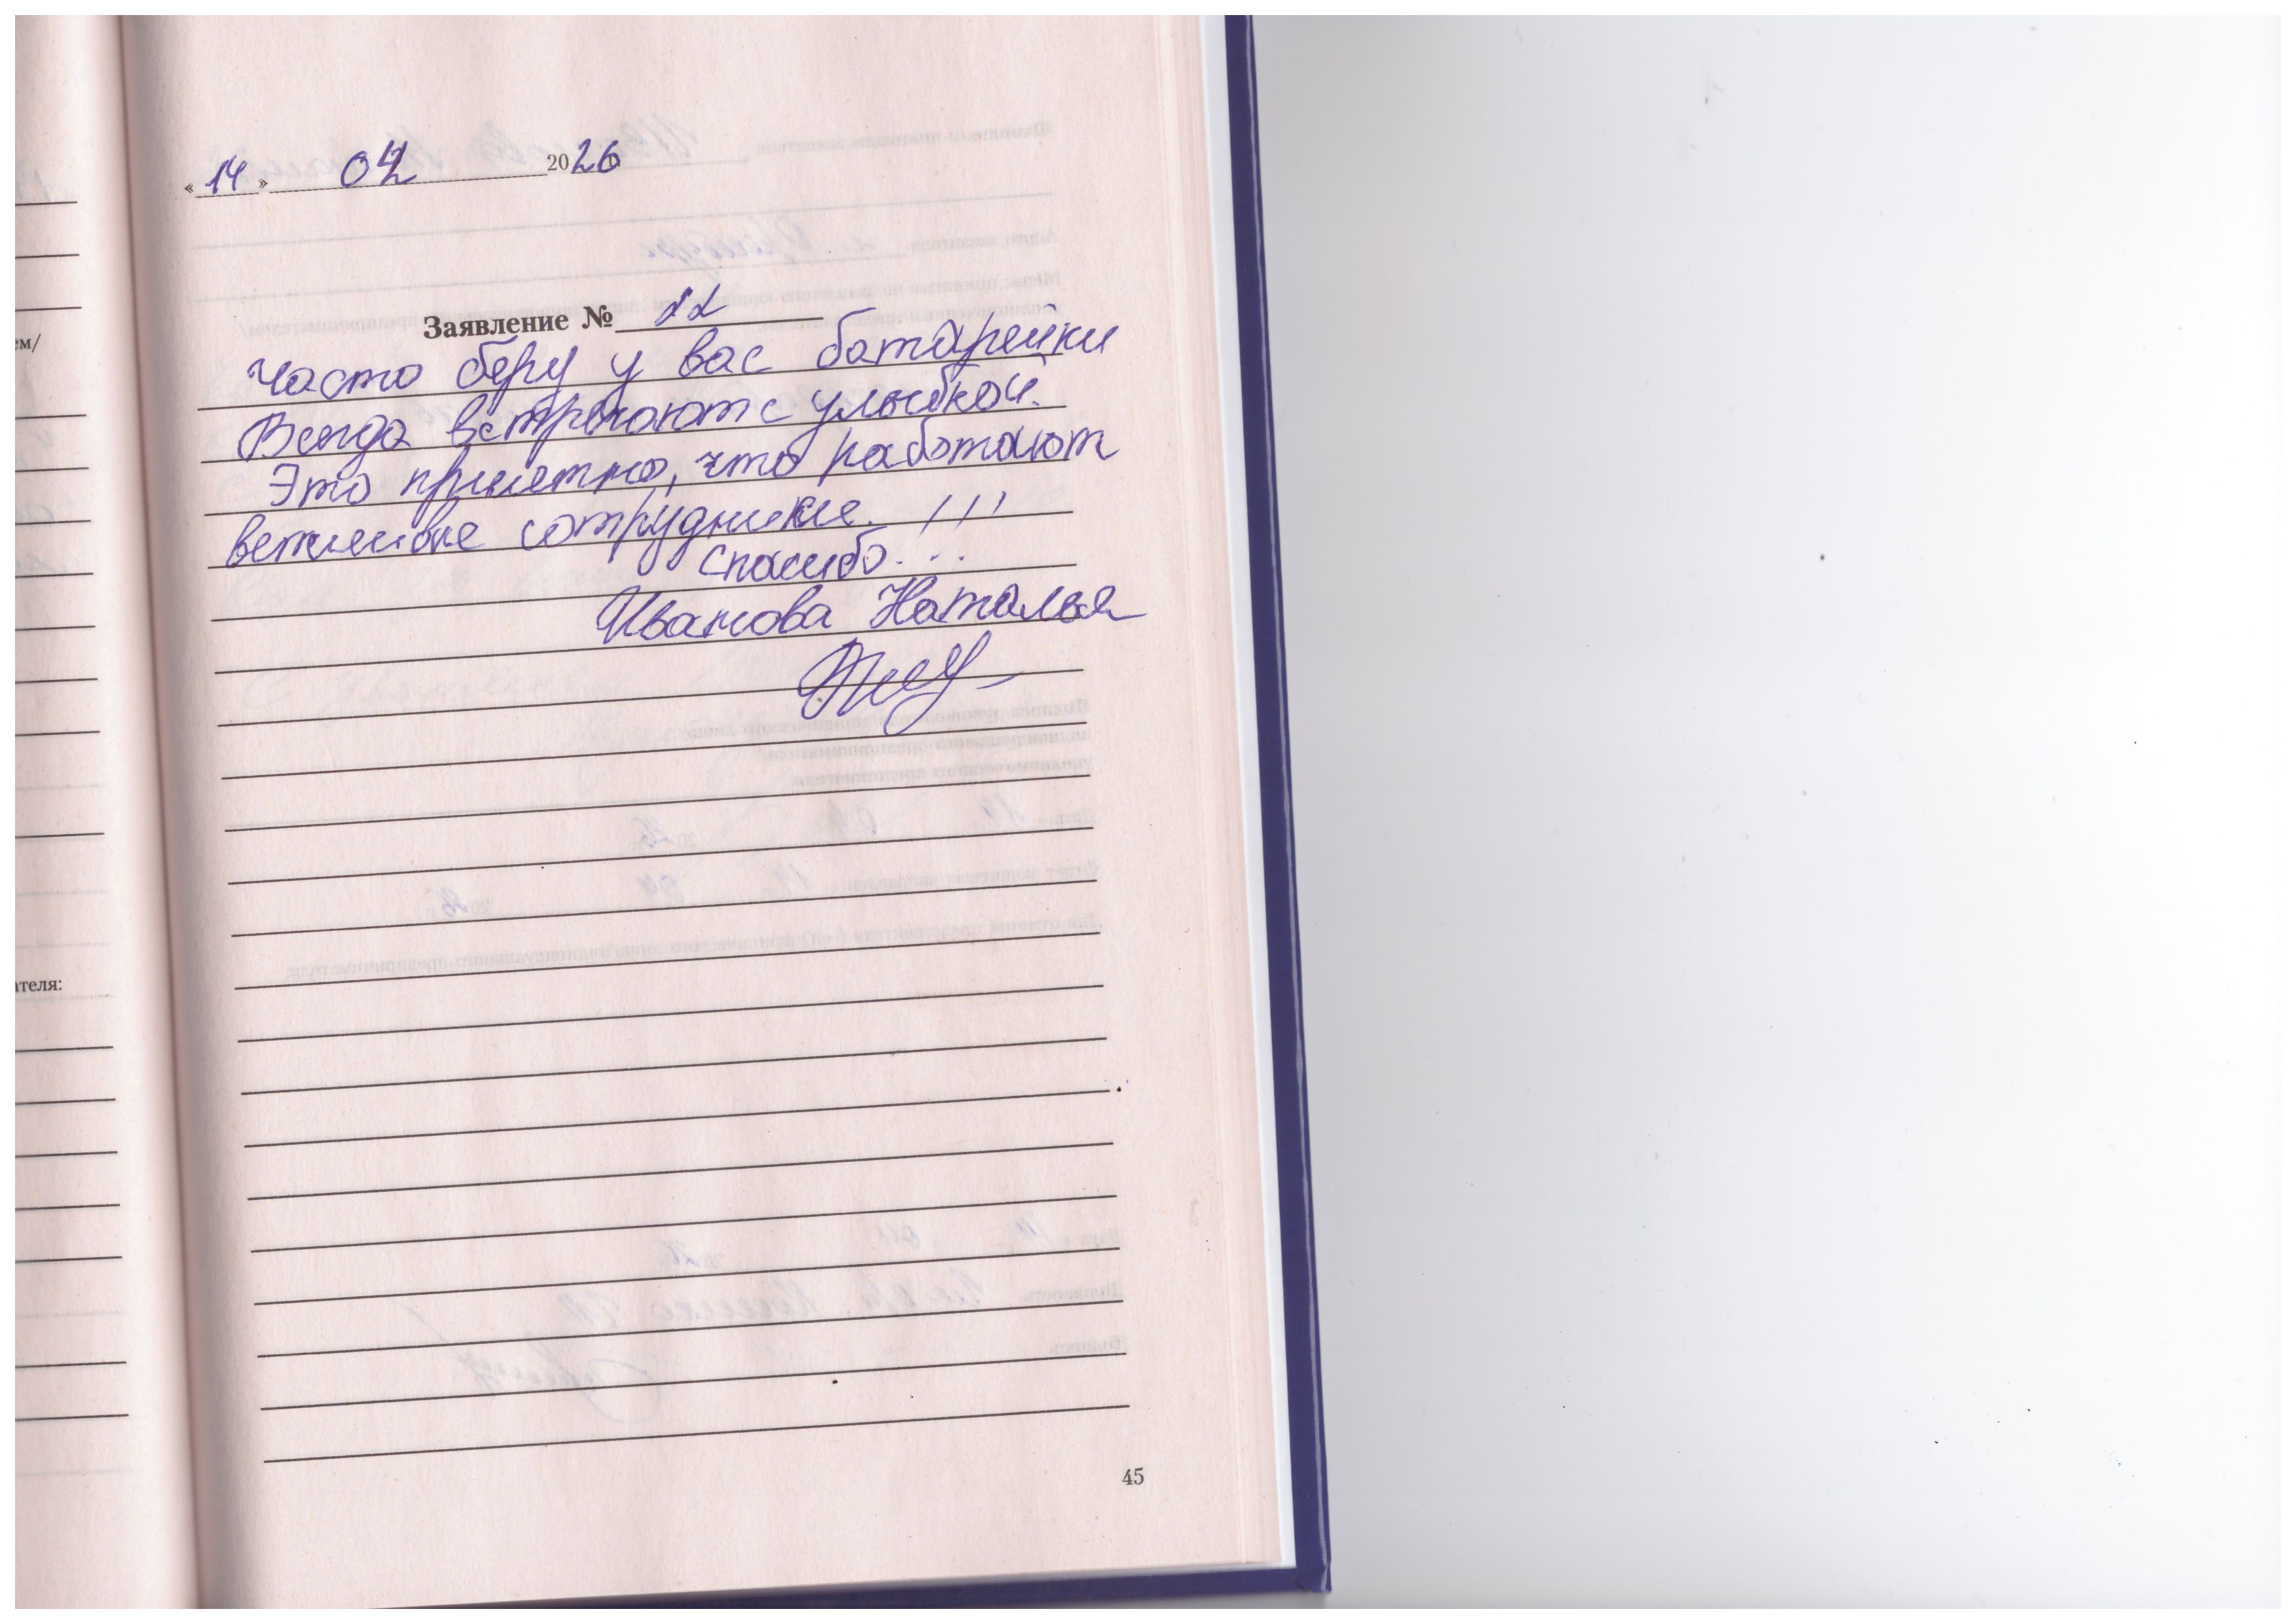 « 14 » 04 2026
Заявление № 22
Часто беру у вас батарейки
Всегда встречают с улыбкой.
Это приятно, что работают
вежливые сотрудники.
Спасибо!!!
Иванова Наталья
ем/
ателя:
45